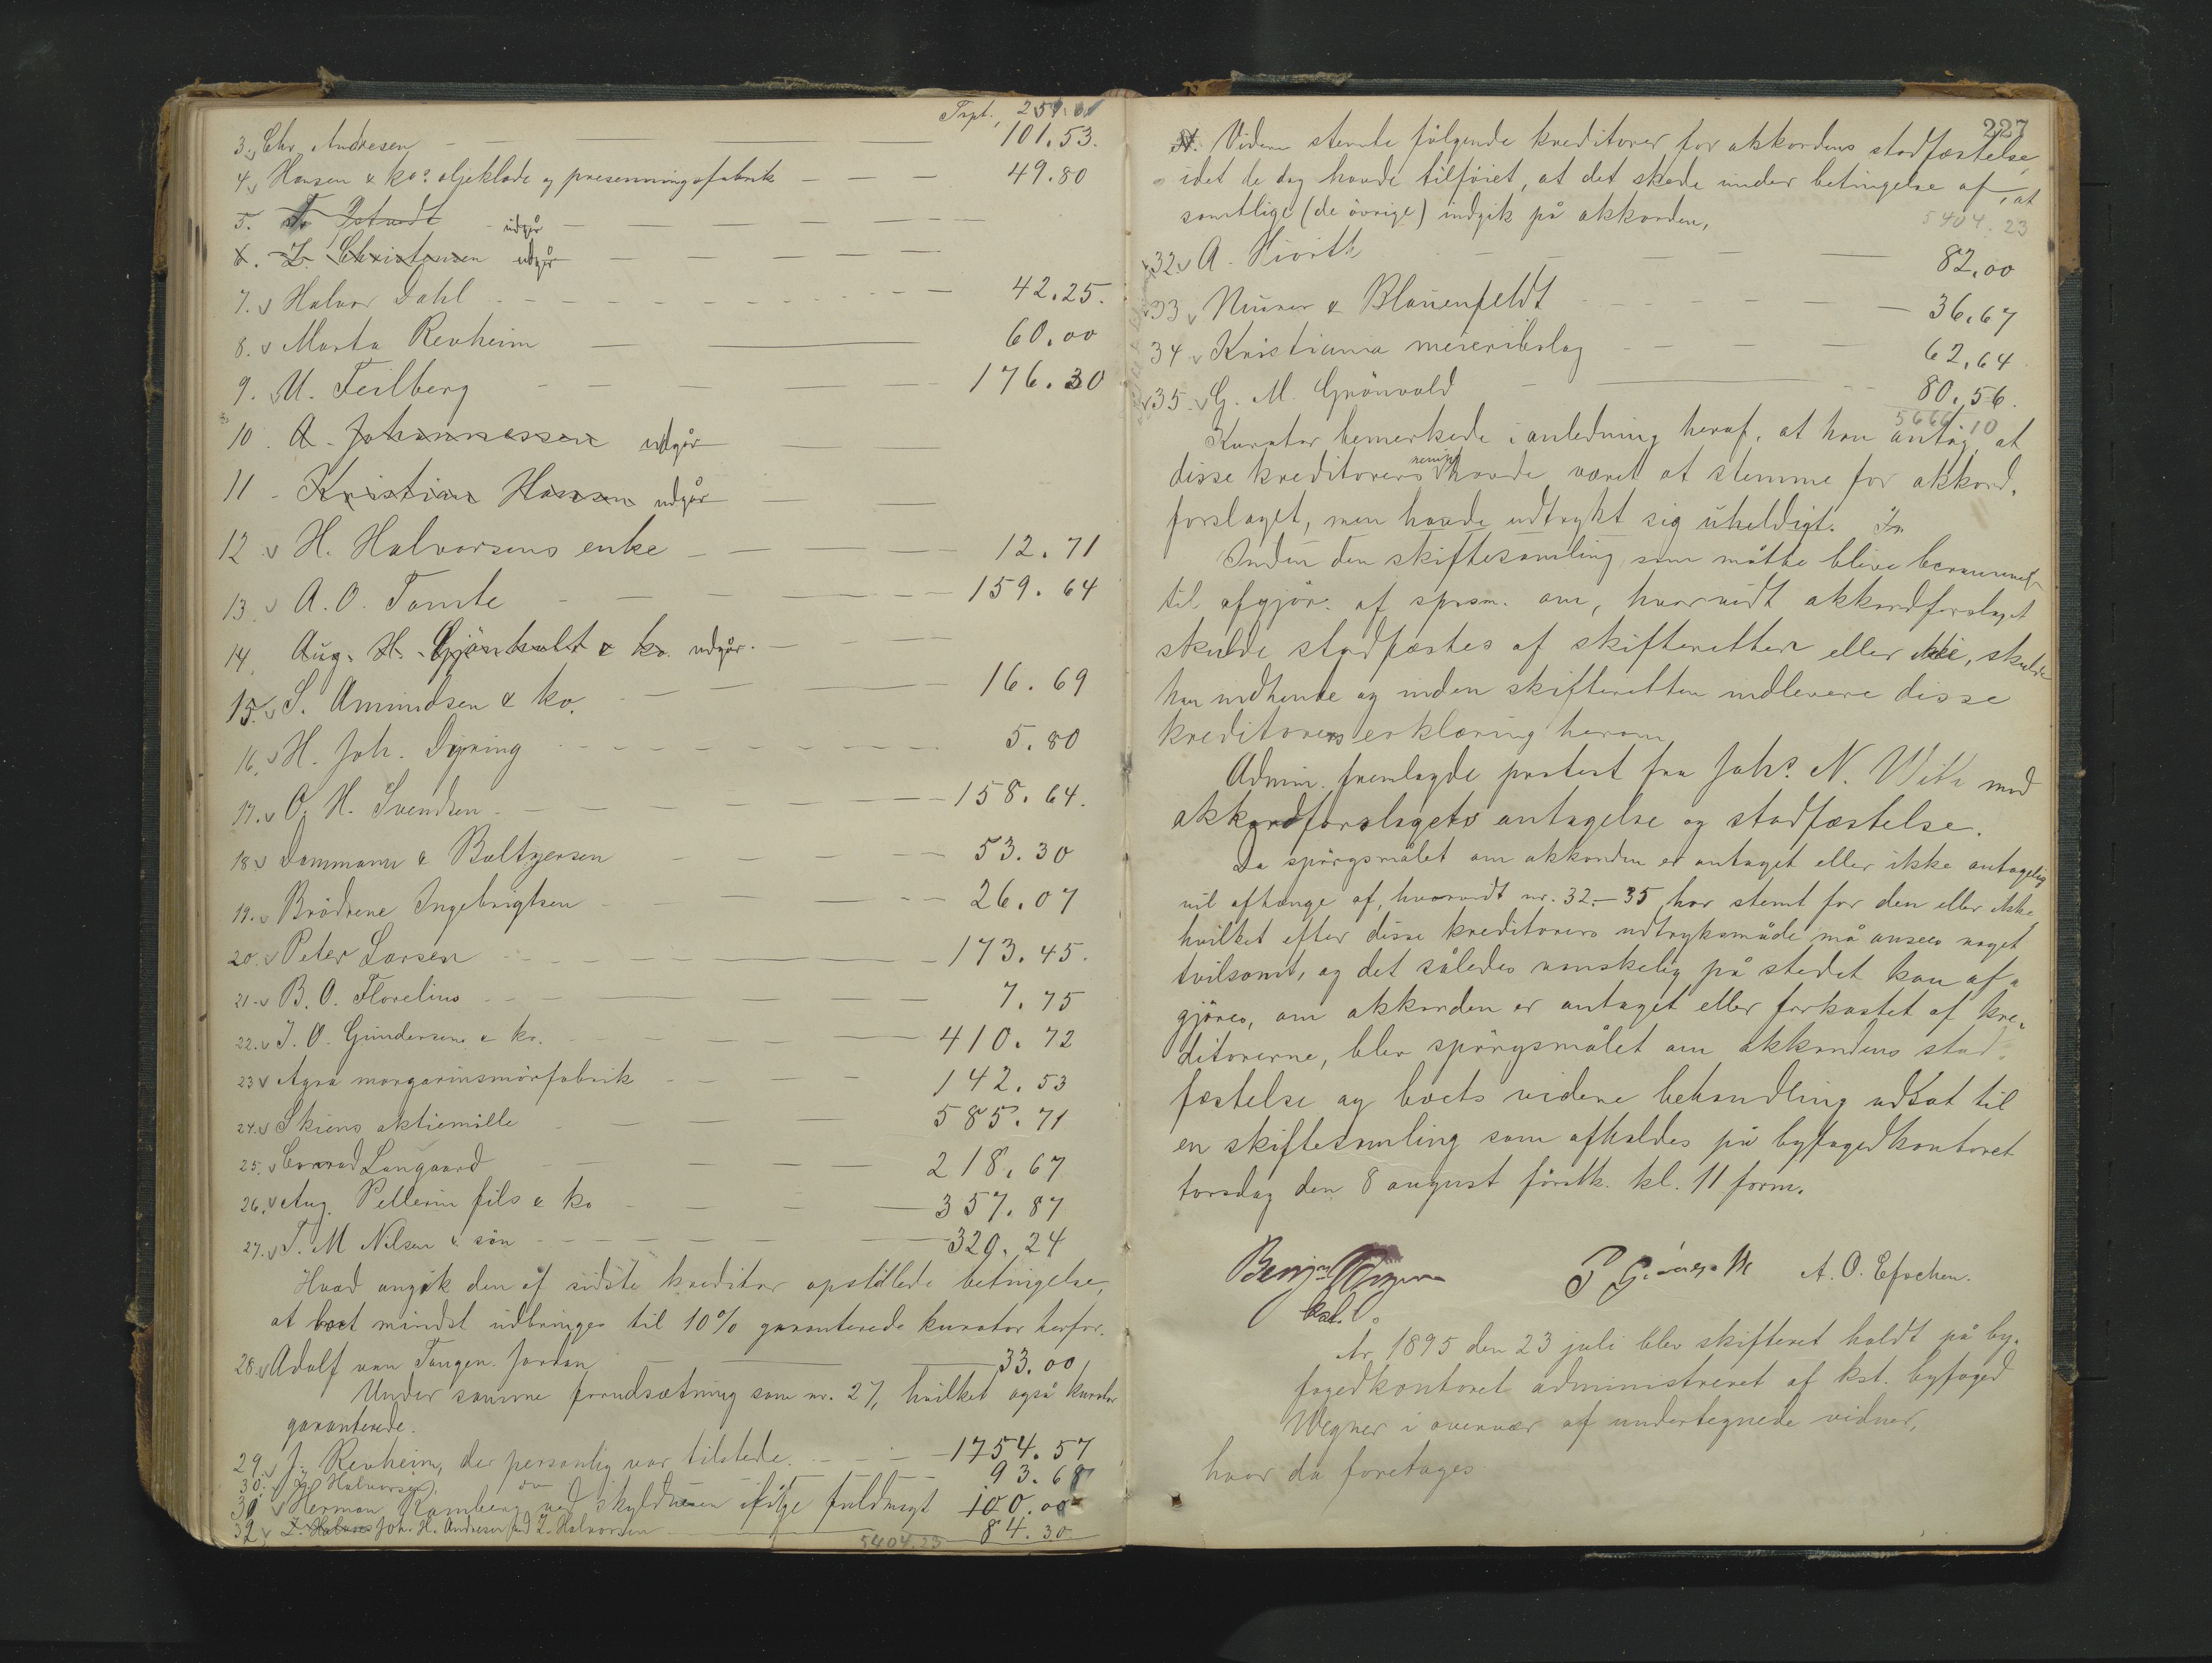 Trpt. 251.61
3. Chr. Andresen 101.53.
4. Hansen & ko.s oljeklæde og presenningsfabrik 49.80
5. udgår
6. Z. Christensen udgår
7. Halvor Dahl 42.25.
8. Marta Revheim 60.00
9. U. Feilberg 176.30
10. A. Johannessen udgår
11 - Kristian Hansen udgår
12 H. Halvorsens enke 12.71
13. A. O. Tomte 159.64
14. Aug. H. & ko. udgår.
15. S. Amundsen & ko. 16.69
16. H. Joh. Dyring 5.80
17. O. H. Svendsen 158.64.
18. Dammann & Baltzersen 53.30
19. Brödrene Ingebrigtsen 26.07
20. Peter Larsen 173.45.
21. B. O. Florelius 7.75
22. J. O. Gundersen & ko. 410.72
23 Agra margarinsmörfabrik 142.53
24. Skiens aktiemölle 585.71
25. Conrad Langaard 218.67
26. Aug. Pellerin fils & ko 357.87
27. T. M Nilsen & sön 320.24
Hvad angik den af sidste kreditor opstillede betingelse,
at boet mindst udbringes til 10% garanterede kurator herfor.
28. Adolf van Tangen. Jordan 33.00
Under samme forudsætning som nr. 27, hvilket også kurator
garanterede.
29. J. Revheim, der personlig var tilstede. 1754.57
30. Halvorsen 93.68
31 Herman Ramberg ved skyldneren ifölge fuldmagt 100.00
32 Joh. H. Andresen ved Z. Halvorsen 84.30
5404.23
227
Videre stemte fölgende kreditorer for akkordens stadfæstelse,
idet de dog havde tilföiet, at det skede under betingelse af, at
samtlige (de övrige) indgik på akkorden,
5404.23
32. A. Hiorth 82.00
33 Musæus & Blauenfeldt 36.67
34 Kristiania meieribolag 62.64
35. G. M. Grönvold 80.56.
5666.10
Kurator bemerkede i anledning heraf, at han antog, at
disse kreditorers mening havde været at stemme for akkord-
forslaget, men havde udtrykt sig uheldigt. In
Inden den skiftesamling, som måtte blive berammet
til afgjör. af spsm. om, hvorvidt akkordforslaget
skulde stadfæstes af skifteretten eller ikke, skulde
han indhente og inden skifteretten indlevere disse
kreditorers erklæring herom.
Admin. fremlagde protest fra Johs. N. With mod
akkordforslagets antagelse og stadfæstelse.
Da spörgsmålet om akkorden er antaget eller ikke antagelig
vil afhænge af, hvorvidt nr. 32-35 har stemt for den eller ikke,
hvilket efter disse kreditorers udtryksmåde må ansees noget
tvilsomt, og det således vanskelig på stedet kan af-
gjöres, om akkorden er antaget eller forkastet af kre-
ditorerne, blev spörgsmålet om akkordens stad-
fæstelse og boets videre behandling udsat til
en skiftesamling som afholdes på byfogedkontoret
torsdag den 8 august förstk. kl. 11 form.
Benj. Wegner
kst. A. O. Efschen.
År 1895 den 23 juli blev skifteret holdt på by-
fogedkontoret administreret af kst. byfoged
Wegner i overvær af undertegnede vidner,
hvor da foretages